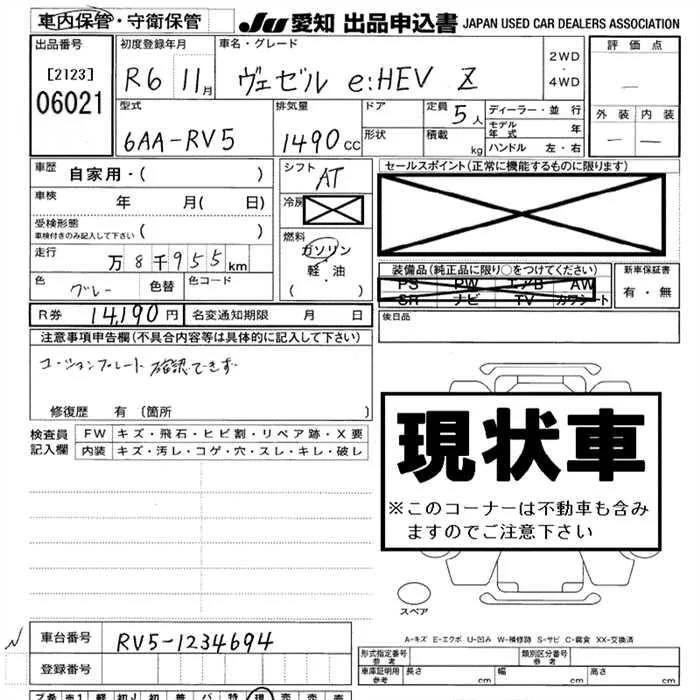 車内保管・守衛保管
JU 愛知 出品申込書 JAPAN USED CAR DEALERS ASSOCIATION
出品番号
[2123]
06021
初度登録年月
R6 11月
車名・グレード
ヴェゼル e:HEV Z
2WD
・
4WD
評価点
—
外装 内装
— —
型式
6AA-RV5
排気量
1490 CC
ドア
形状
定員 5人
積載 kg
ディーラー・並行
モデル年式 年
ハンドル 左・右
車歴
自家用・( )
車検 年 月( 日)
受検形態
車検付きのみ記入して下さい ( )
走行 万 8千955km
色 グレー 色替 色コード
シフト AT
冷房
燃料
ガソリン
軽・油
( ・ )
セールスポイント(正常に機能するものに限ります)
装備品(純正品に限り○をつけてください)
PS PW エアB AW
SR ナビ TV カワシート
新車保証書
有・無
後日品
R券 14,190円 名変通知期限 月 日
注意事項申告欄(不具合内容等は具体的に記入して下さい)
コーションプレート確認できず
修復歴 有〔箇所 〕
検査員
記入欄
FW キズ・飛石・ヒビ割・リペア跡・X要
内装 キズ・汚レ・コゲ・穴・スレ・キレ・破レ
現状車
※このコーナーは不動車も含み
ますのでご注意下さい
スペア
A-キズ E-エクボ U-凹み W-補修跡 S-サビ C-腐食 XX-交換済
N
車台番号 RV5-1234694
登録番号
形式指定番号
参考
類別区分番号
参考
車庫証明用
参考
長さ cm 幅 cm 高さ cm